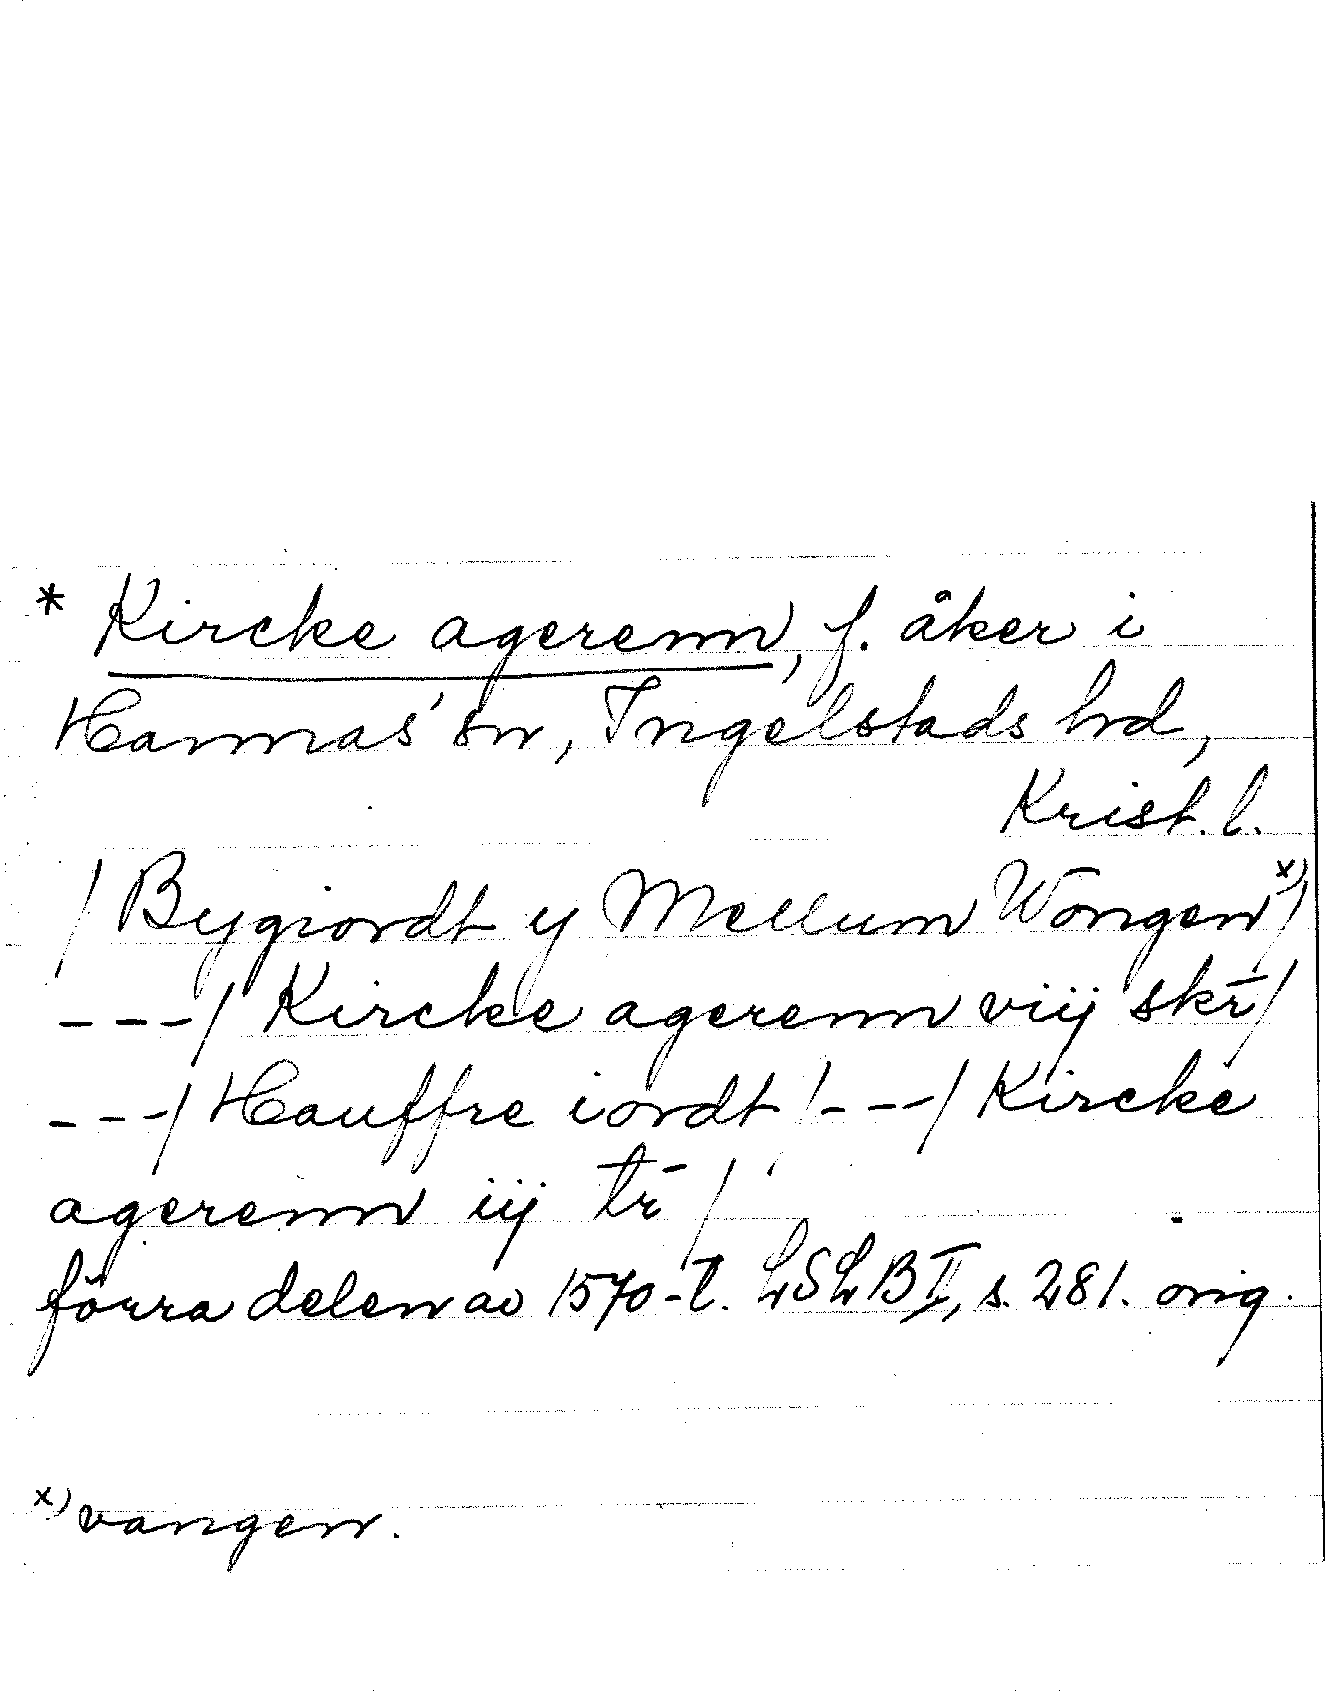 * Kircke agerenn, f. åker i
Hannas' sn, Ingelstads hrd,
Krist. l.
/ Bygiordt y Mellum Wongen x)/
---/ Kircke agerenn viij skr̄/
---/ Hauffre iordt /---/ Kircke
agerenn iij tr̄ /
förra delen av 1570-t. LSLB II, s. 281. orig.
x) vangen.